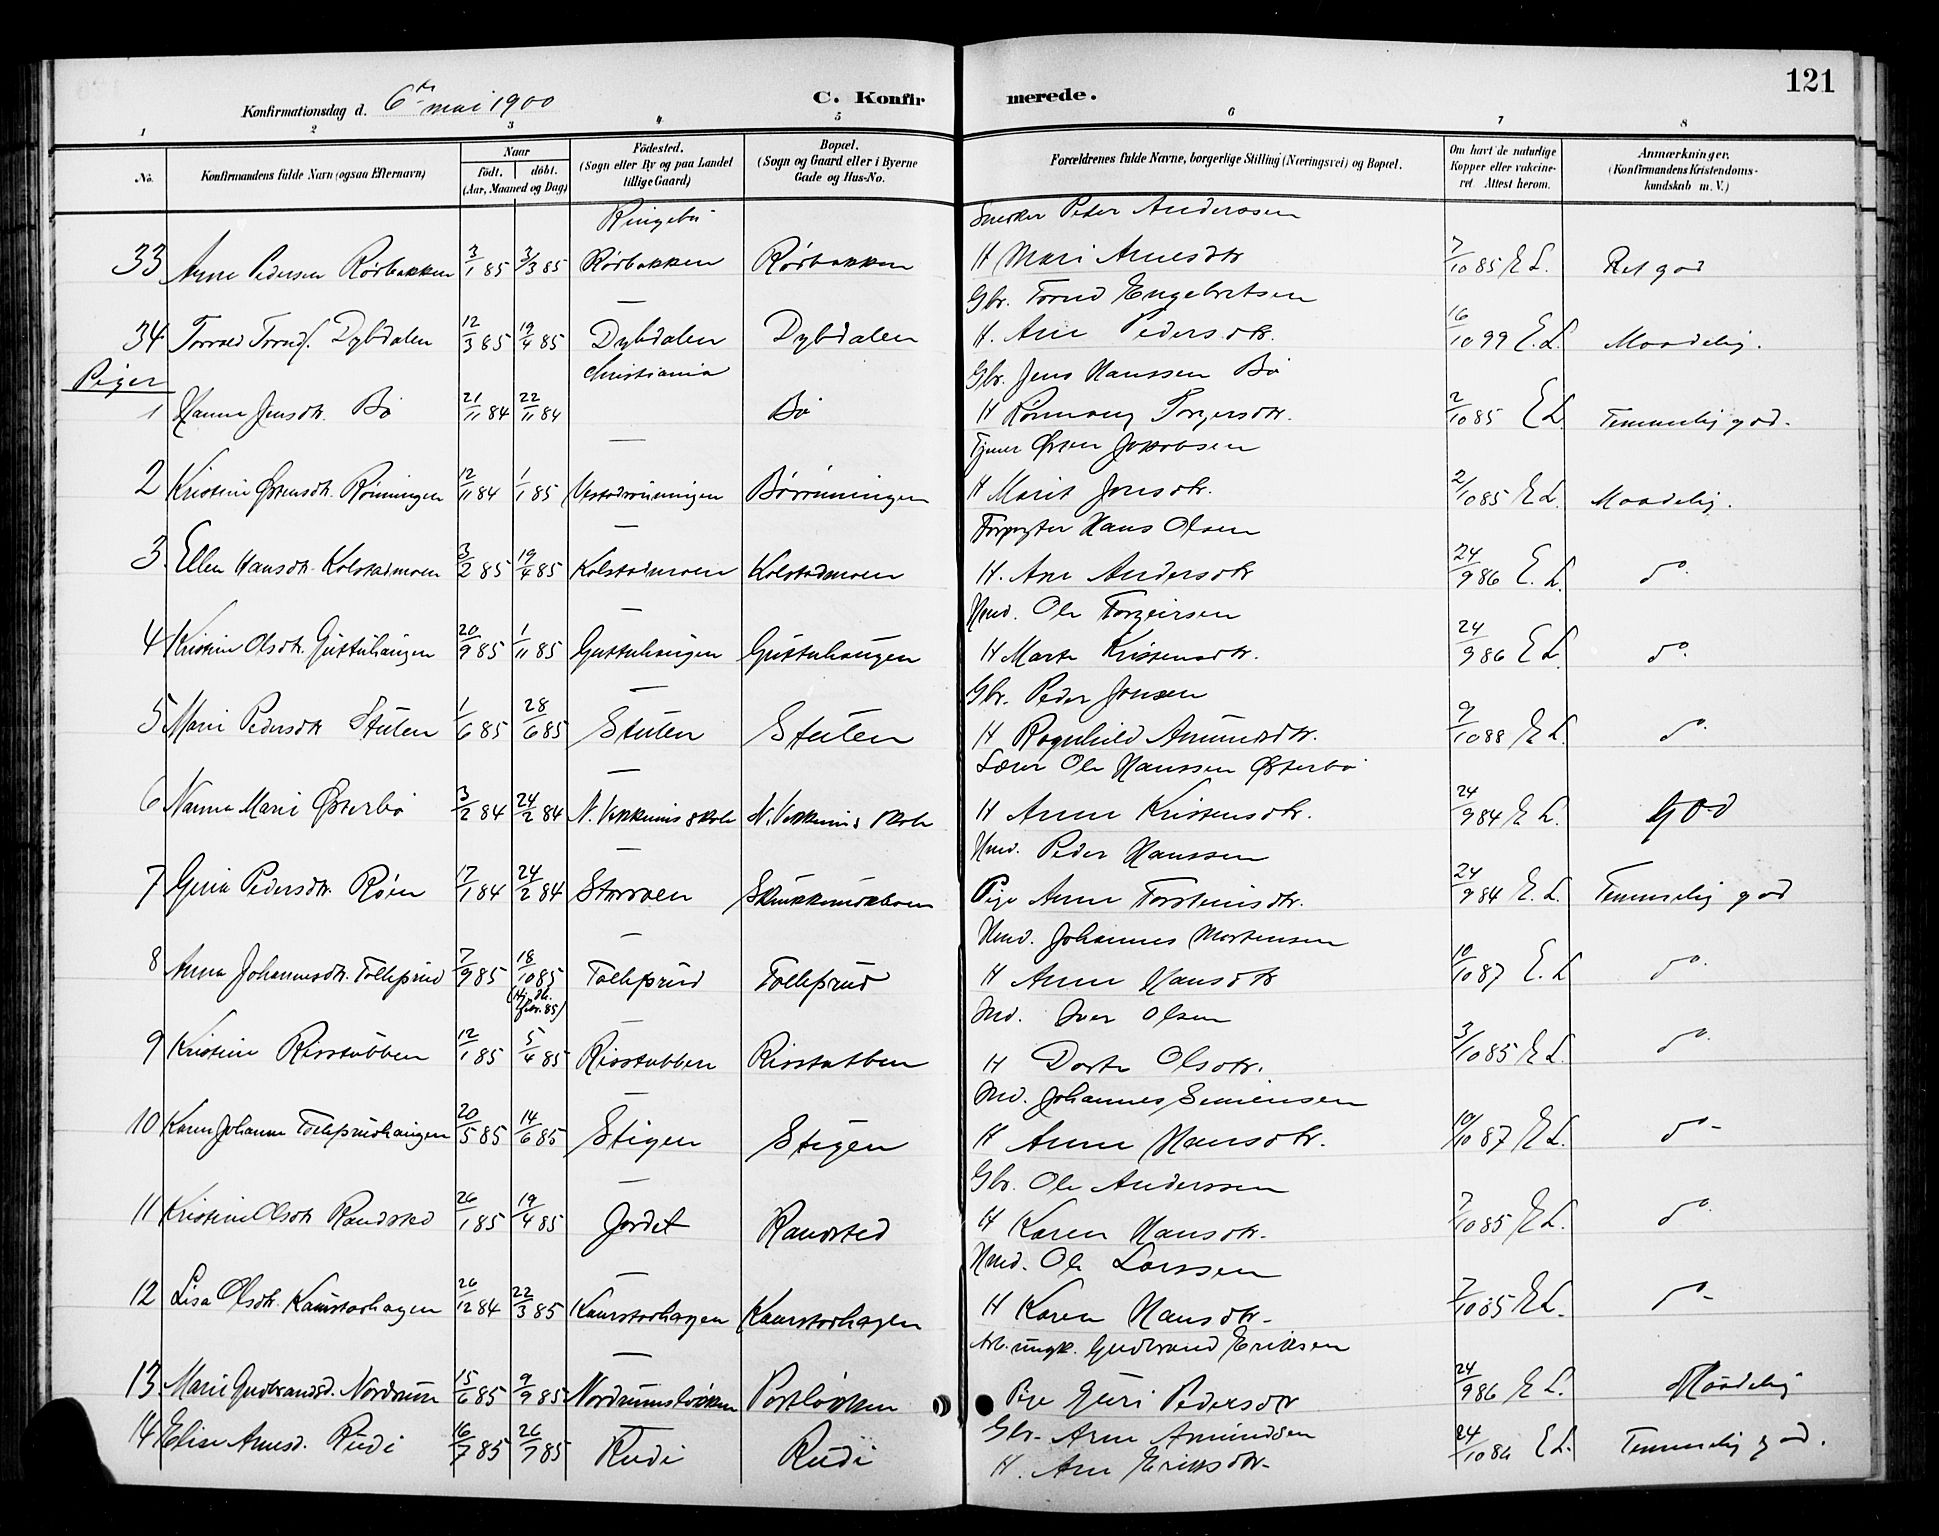 121
Konfirmationsdag d. 6te mai 1900 C. Konfirmerede.
1 2 3 4 5 6 7 8
No. Konfirmandens fulde Navn (ogsaa Efternavn) Naar födt. döbt. (Aar, Maaned og Dag) Födested. (Sogn eller By og paa Landet tillige Gaard) Bopæl. (Sogn og Gaard eller i Byerne Gade og Hus-No. Forældrenes fulde Navne, borgerlige Stilling (Næringsvei) og Bopæl. Om havt de naturlige Kopper eller vakcineret. Attest herom. Anmærkninger. (Konfirmandens Kristendomskundskab m. V.)
Ringebu Snekker Peder Anderssen
33 Arne Pedersen Rörbakken 3/1 85 3/3 85 Rörbakken Rörbakken H Mari Arnesdtr 7/10 85 E L. Ret god
— Gbr. Trond Engebretsen
34 Torvald Trondf. Dybdalen 12/3 85 19/4 85 Dybdalen Dybdalen H. Ane Pedersdtr. 16/10 99 E. L. Maadelig.
Piger Christiania Gbr. Jens Hanssen Bö
1 Hanna Jensdtr. Bö 21/11 84 22/11 84 Bö H Ronnaug Torgersdtr. 2/10 85 E L Temmelig god.
— Tjener Østen Jakobsen
2 Kristine Østensdtr. Rönningen 12/11 84 1/1 85 Vestadrönningen Börönningen H Marit Jonsdtr. 2/10 85 E L. Maadelig.
— Forpagter Hans Olsen
3. Ellen Hansdtr. Kolstadmoen 3/2 85 19/4 85 Kolstadmoen Kolstadmoen H. Ane Andersdtr 24/9 86 E. L. do.
— Hmd. Ole Torgeirsen
4 Kristine Olsdtr. Gutuhaugen 20/9 85 1/11 85 Gutuhaugen Gutuhaugen H Marte Kristensdtr. 24/9 86 E L. do.
— Gbr. Peder Jonsen
5 Marie Pedersdtr Stulen 1/6 85 28/6 85 Stulen Stulen H Ragnhild Amundsdtr. 9/10 88 E L. do.
— Lærer Ole Hanssen Østerbö
6 Nanna Marie Østerbö 3/2 84 24/2 84 N. Vekkums skole N. Vekkums skole H Anne Kristensdtr. 24/9 84 E L. god
— Hmd. Peder Hanssen
7 Gina Pedersdtr. Röen 17/1 84 24/2 84 Storroen Pige Anne Torsteinsdtr. 24/9 84 E. L. Temmelig god
— Hmd. Johannes Mortensen
8 Anna Johannesdtr. Tollefsrud 7/9 85 18/10 85 Tollefsrud Tollefsrud H Anne Hansdtr 10/10 87 E. L do.
— Ind. Iver Olsen
9 Kristine Risstubben 12/1 85 5/4 85 Risstubben Risstubben H Dorte Olsdtr. 3/10 85 E L. do.
— Ind. Johannes Simensen
10 Karen Johanne Tollefsrudhaugen 20/5 85 14/6 85 Stigen Stigen H Anne Hansdtr. 10/10 87 E L. do-
— Gbr. Ole Anderssen
11 Kristine Olsdtr Randsted 26/1 85 19/4 85 Jordet Randsted H Karen Hansdtr. 7/10 85 E L. do.
— Hmd. Ole Larssen
12 Lisa Olsdtr. Kaurstadhagen 26/12 84 22/3 85 Kaurstadhagen Kaurstadhagen H Karen Hansdtr. 7/10 85 E L. do-
— Arb. ungk. Gudbrand Eriksen
13. Marie Gudbrandsd. Nordrum 15/6 85 9/9 85 Nordrumslökken Portlökken Pige Guri Pedersdtr 24/9 86 E L. Maadelig
14 Elise Arnesd. Rudi 16/7 85 26/7 85 Rudi Rudi Gbr. Arne Amundsen 24/10 86 E L. Temmelig god.
H. Ane Eriksdtr.